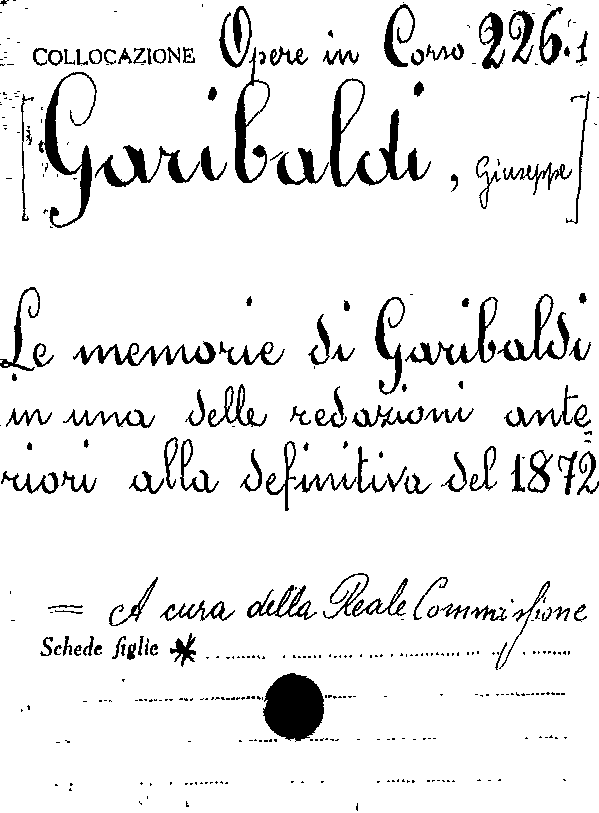 COLLOCAZIONE Opere in Corso 226.1
[Garibaldi, Giuseppe]
Le memorie di Garibaldi
in una delle redazioni ante
riori alla definitiva del 1872
= A cura della Reale Commissione
Schede figlie *